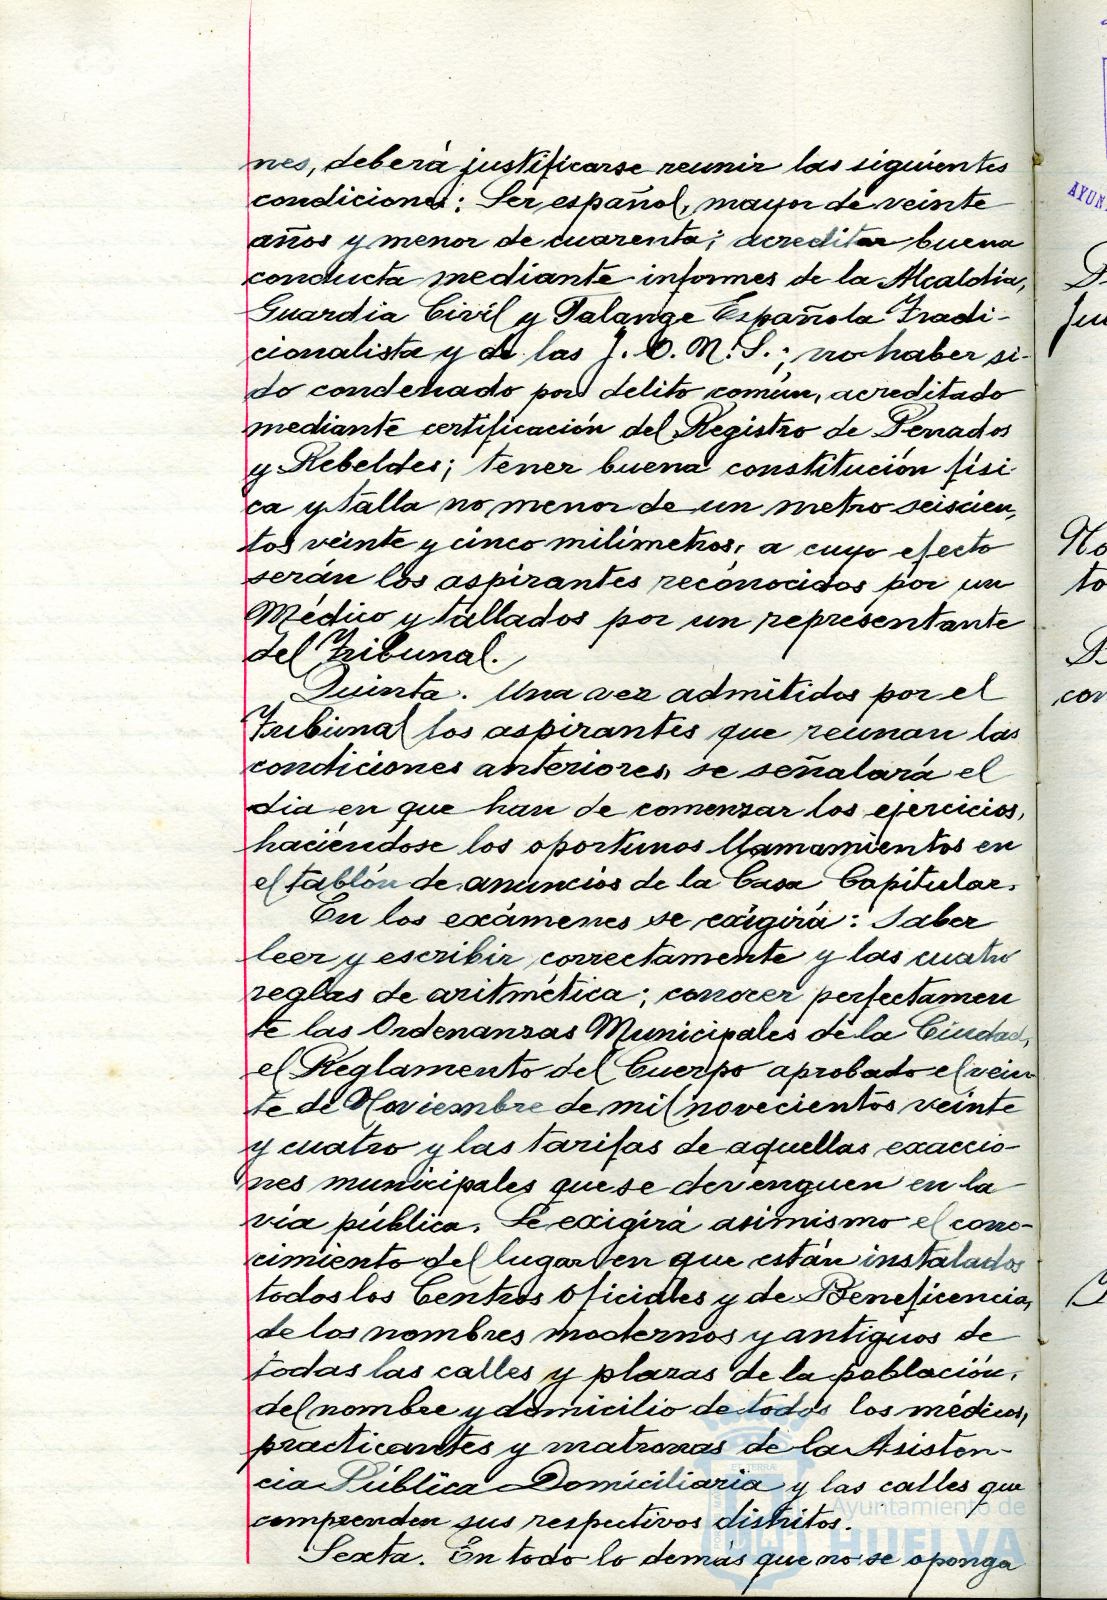 nes, deberá justificarse reunir las siguientes
condiciones: Ser español, mayor de veinte
años y menor de cuarenta; acreditar buena
conducta mediante informes de la Alcaldía,
Guardia Civil y Falange Española Tradi-
cionalista y de las J. O. N. S.; no haber si-
do condenado por delito común, acreditado
mediante certificación del Registro de Penados
y Rebeldes; tener buena constitución físi-
ca y talla no menor de un metro seiscien-
tos veinte y cinco milímetros, a cuyo efecto
serán los aspirantes reconocidos por un
Médico y tallados por un representante
del Tribunal.
Quinta. Una vez admitidos por el
Tribunal los aspirantes que reunan las
condiciones anteriores, se señalará el
dia en que han de comenzar los ejercicios,
haciéndose los oportunos llamamientos en
el tablón de anuncios de la Casa Capitular.
En los exámenes se exigirá: Saber
leer y escribir correctamente y las cuatro
reglas de aritmética; conocer perfectamen
te las Ordenanzas Municipales de la Ciudad,
el Reglamento del Cuerpo aprobado el vein
te de Noviembre de mil novecientos veinte
y cuatro y las tarifas de aquellas exaccio-
nes municipales que se devenguen en la
vía pública. Se exigirá asimismo el cono-
cimiento del lugar en que están instalados
todos los Centros Oficiales y de Beneficencia,
de los nombres modernos y antiguos de
todas las calles y plazas de la población,
del nombre y domicilio de todos los médicos,
practicantes y matronas de la Asisten-
cia Pública Domiciliaria y las calles que
comprenden sus respectivos distritos.
Sexta. En todo lo demás que no se oponga
Ayuntamiento de
HUELVA